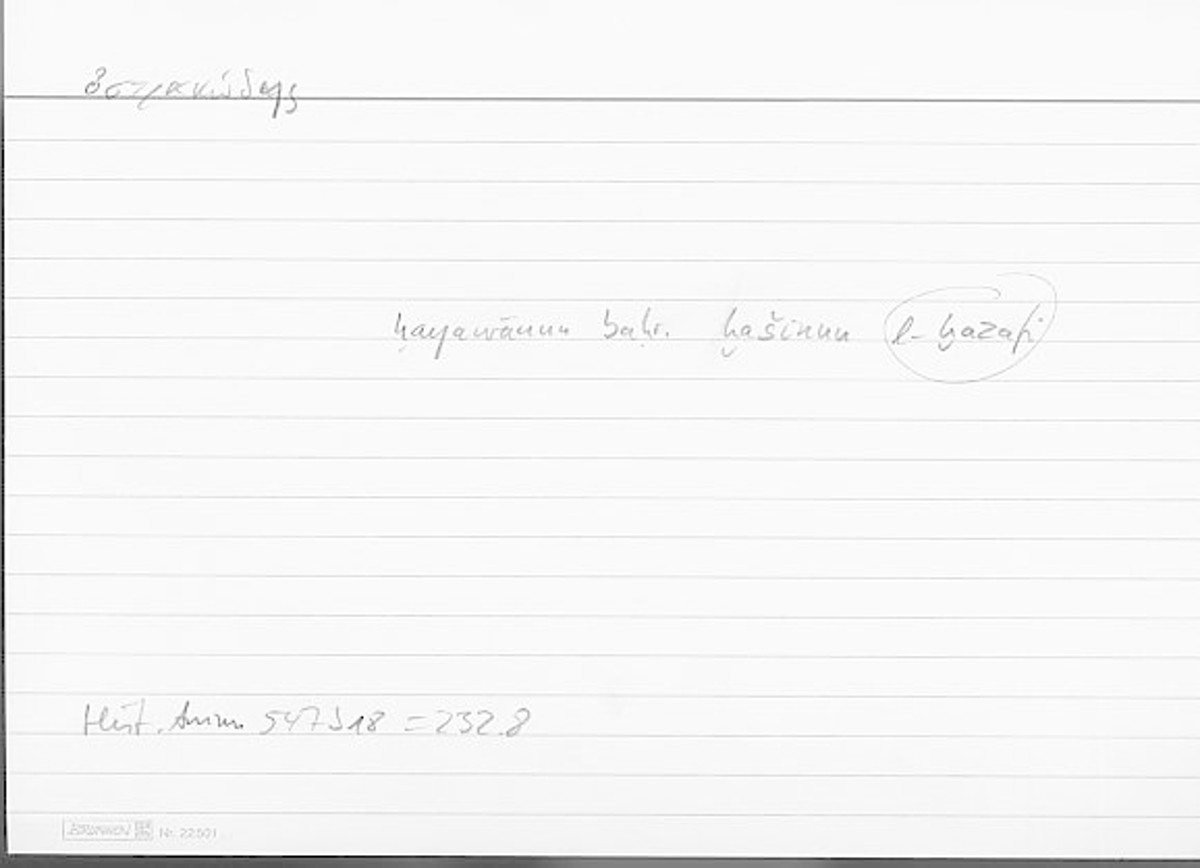 ὀστρακώδης
ḥayawānun baḥr. ḫašinun l-ḫazafi
Hist. Anim 547 b 18 = 232.8
BRUNNEN Nr. 22501